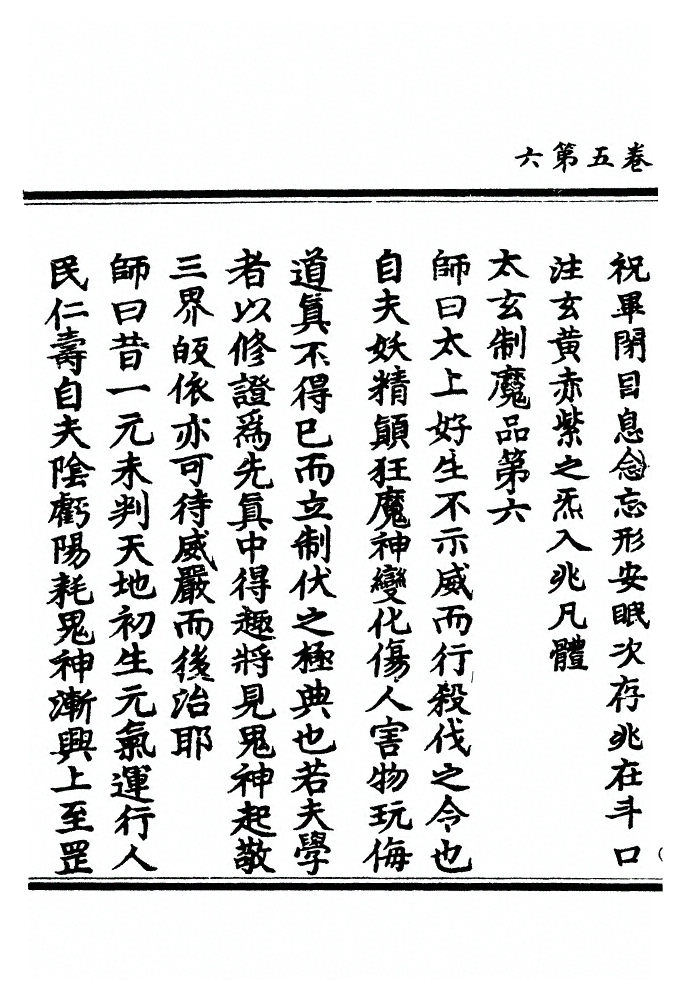 卷五第六
祝畢閉目息念忘形安眠次存兆在斗口
注玄黃赤紫之炁入兆凡體
太玄制魔品第六
師曰太上好生不示威而行殺伐之令也
自夫妖精顛狂魔神變化傷人害物玩侮
道眞不得已而立制伏之極典也若夫學
者以修證爲先眞中得趣將見鬼神起敬
三界皈依亦可待威嚴而後治耶
師曰昔一元未判天地初生元氣運行人
民仁壽自夫陰虧陽耗鬼神漸興上至罡